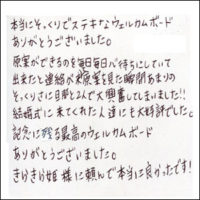 本当にそっくりでステキなウェルカムボード
ありがとうございました。
原案ができるのを毎日毎日心待ちにしていて
出来たと連絡が来原案を見た瞬間あまりの
そっくりさに旦那と2人で大興奮してしまいました!!
結婚式に来てくれた人達にも大好評でした。
記念に残る最高のウェルカムボード
ありがとうございました。
様に頼んで本当に良かったです!